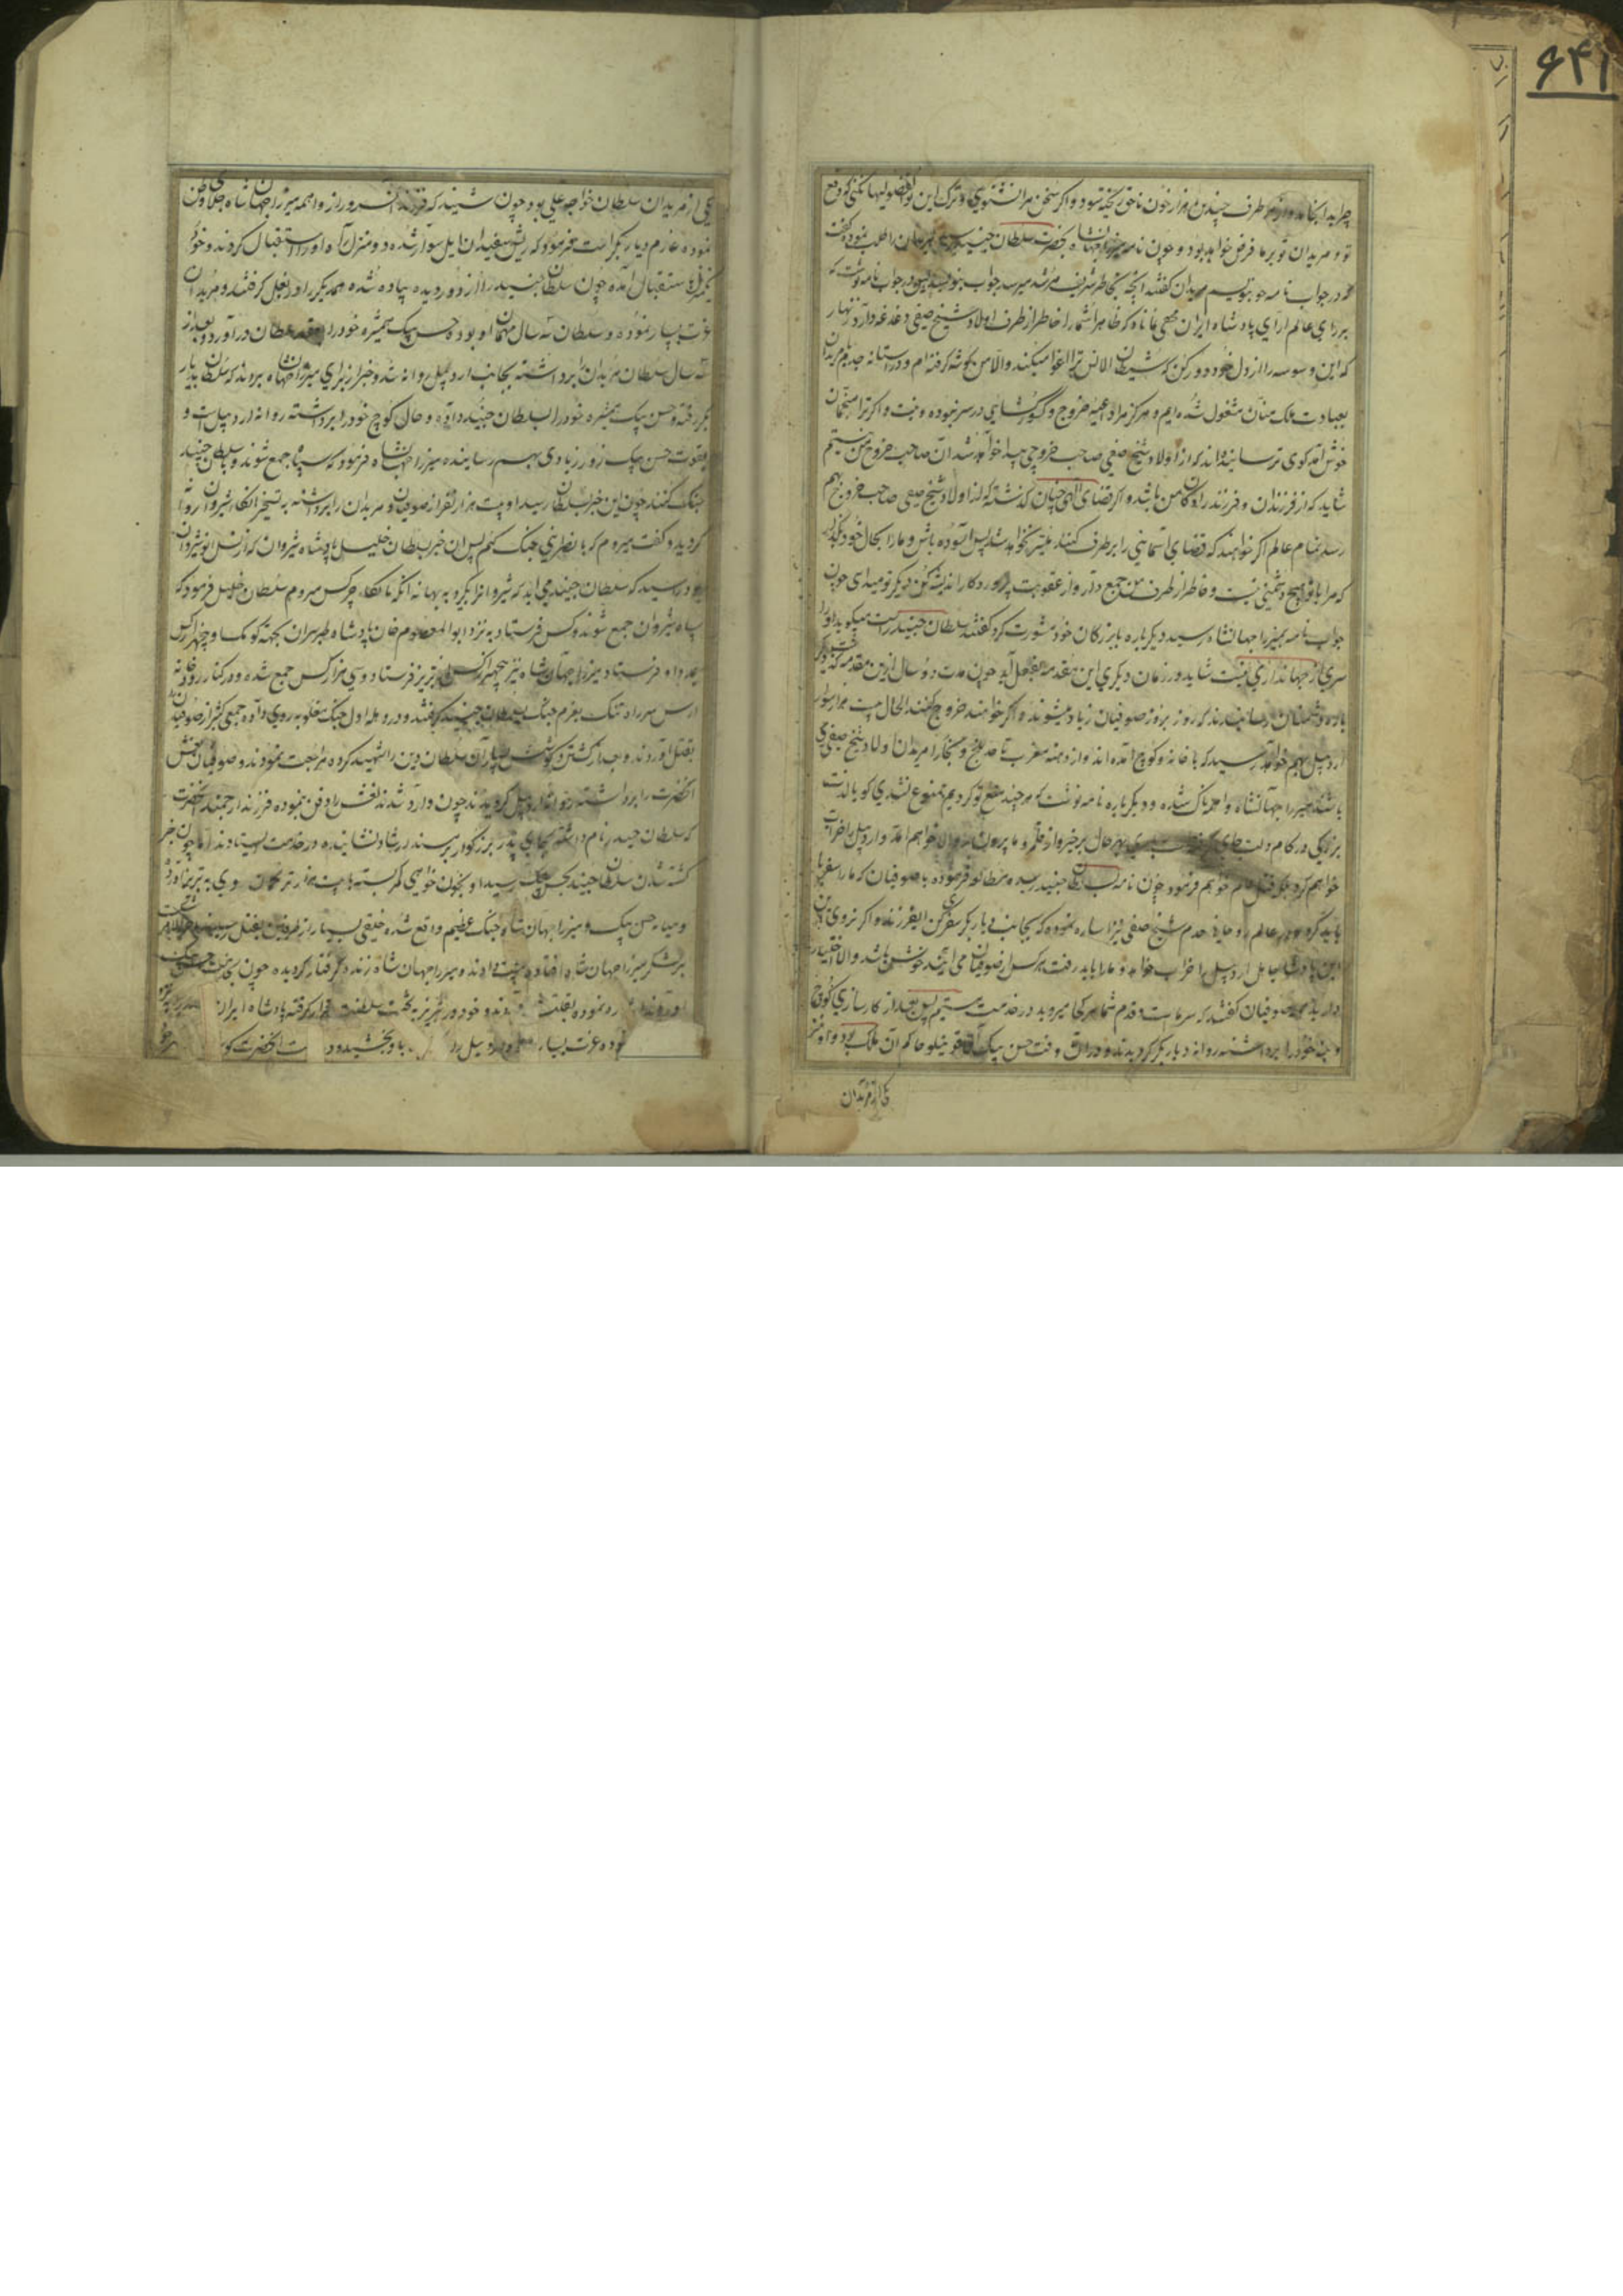 ۶۴۱
چرا بدانجا آمد و از هر طرف چندین هزار خون ناحق ریخته شود و اگر سخن مرا نشنوی و ترک این فضولیها نکنی که دفع
تو و مریدان تو بر ما فرض خواهد بود و چون نامه میرزا جهانشاه بحضرت سلطان جنید رسید مریدان را طلب نموده گفت
که در جواب نامه چو بنویسم مریدان گفتند انچه بخاطر شریف مرشد میرسد جواب بنویسید پس در جواب نامه نوشت که
بر رای عالم ارای پادشاه ایران مخفی نماناد که ظاهرا شما را خاطر از طرف اولاد شیخ صفی دغدغه دارد زنهار
که این وسوسه را از دل خود دور کن که شیطان الانس ترا اغوا میکنند والا من گوشه گرفته ام و در آستانه جد با مریدان
بعبادت ملک منان مشغول شده ایم و هرگز مرا داعیه خروج و کشورگشایی در سر نبوده و نیست و اگر ترا منجمان
خوش آمد گوی ترسانیده اند که از اولاد شیخ صفی صاحب خروجی پیدا خواهد شد آن صاحب خروج من نیستم
شاید که از فرزندان و فرزندزادگان من باشد و اگر قضای الهی چنان گذشته که از اولاد شیخ صفی صاحب خروج بهم
رسد تمام عالم اگر خواهند که قضای آسمانی را برطرف کنند میسر نخواهد شد پس آسوده باش و ما را بحال خود بگذار
که مرا با تو هیچ دشمنی نیست و خاطر از طرف من جمع دار و از عقوبت پروردکار اندیشه کن دیگر تو میدانی چون
جواب نامه بمیرزا جهانشاه رسید دیگر باره با بزرگان خود مشورت کرد گفتند سلطان جنید راست میگوید او را
سری از جهانداری نیست شاید در زمان دیگری این مقدمه بفعل آید چون مدت دو سال از این مقدمه گذشت دیگر
باره دشمنان رسانیدند که روز بروز صوفیان زیاد میشوند و اگر خواهند خروج کنند الحال بیست هزار سوار
اردبیل بهم خواهد رسید که با خانه و کوچ آمده اند و از دهنه مغرب تا حد بلخ و بخارا مریدان اولاد شیخ صفی
باشند میرزا جهانشاه واهمه ناک شده و دیگر باره نامه نوشت که هر چند منع تو کردیم ممنوع نشدی که با لذت
بزرگی در کام دلت جای بهر حال برخیز و از قلمرو ما بیرون رو والا خواهم آمد و اردبیل را خراب
خواهم کرد و قتل عام خواهم فرمود چون نامه بسلطان جنید رسید مطالعه فرموده با صوفیان که ما را سفر باید
باید کرد و در عالم رویا حضرت شیخ صفی نیز اشاره نموده که بجانب دیار بکر سفر کن ایفرزند و اگر نروی
این پادشاه جاهل اردبیل را خراب خواهد و ما را باید رفت هر کس از صوفیان می آید خوش باشد والا اختیار
دارید صوفیان گفتند که سر ماست و قدم شما هر کجا میروید در خدمت هستیم پس بعد از کارسازی کوچ
و بنه خود را برداشته روانه دیار بکر گردیدند و در آن وقت حسن بیک آق قوینلو حاکم آن ملک بود و او نیز
یکی از مریدان
یکی از مریدان سلطان خواجه علی بود چون شنید که فرزند آن سرور از واهمه میرزا جهان شاه جلای وطن
نموده عازم دیار بکر است فرمود که ریش سفیدان ایل سوار شده دو منزل راه او را استقبال کردند و خود
یکفرسخ استقبال آمده چون سلطان جنید را از دور دیده پیاده شده همدیگر را در بغل گرفتند و مریدان
عزت بسیار نموده و سلطان سه سال مهمان او بوده حسن بیک همشیره خود را بعقد سلطان درآورد و بعد از
سه سال سلطان مریدان را برداشته بجانب اردبیل روانه شد و خبر از برای میرزا جهانشاه بردند که سلطان بدیار
بکر رفته و حسن بیک همشیره خود را بسلطان جنید داده و حال کوچ خود را برداشته روانه اردبیل است و
بقوت حسن بیک زور زیادی بهم رسانیده میرزا جهانشاه فرمود که سپاه جمع شوند و با سلطان جنید
جنگ کنند چون این خبر بسلطان رسید او بیست هزار نفر از صوفیان و مریدان را برداشته به تسخیر انکار شیروان روانه
گردید و گفت میروم که با نصاری جنگ کنم پس آن خبر بسلطان خلیل پادشاه شیروان که از نسل انوشیروان
بود رسید که سلطان جنید می آید که شیروان را بگیرد به بهانه آنکه بجنگ چرکس میروم سلطان خلیل فرمود که
سپاه شیروان جمع شوند و کس فرستاد به نزد ابوالمعصوم خان پادشاه طبرسران بجهته کومک او چهار هزار کس
بمدد او فرستاد میرزا جهان شاه نیز پنج هزار کس از تبریز فرستاد و سی هزار کس جمع شده و در کنار رودخانه
ارس سر راه تنگ بعزم جنگ بسلطان جنید گرفتند و در وهله اول جنگ مغلوبه روی داده جمعی کثیر از صوفیان
بقتل آوردند و بعد از کشش و کوشش بسیار آن سلطان دین را شهید کرده مراجعت نمودند و صوفیان نعش
آنحضرت را برداشته روانه اردبیل گردیدند چون وارد شدند نعش را دفن نموده فرزند ارجمند آنحضرت
که سلطان حیدر نام داشته بجای پدر بزرگوار بر مسند ارشاد نشانیده در خدمت ایستادند اما چون خبر
کشته شدن سلطان جنید بحسن بیک رسید او بخون خواهی کمر بسته با بیست هزار ترکمان روی به تبریز آورد
و میانه حسن بیک و میرزا جهان شاه جنگ عظیم واقع شده خلقی بسیار از طرفین بقتل رسیدند
بر لشکر میرزا جهان شاه افتاده و میرزا جهان شاه زنده گرفتار گردیده چون بخدمت حسن بیک
آوردند نموده بقتلش و خود در تبریز به تخت سلطنت قرار گرفته پادشاه ایران
نموده عزت بسیار اردبیل را باو بخشید و آنحضرت که